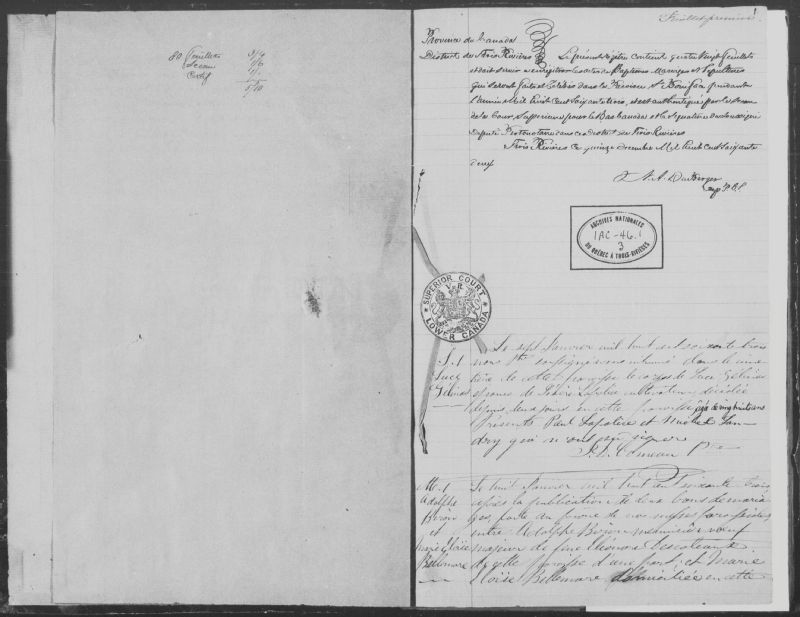 80 Feuillets
Sceau
Certif
Feuillet premier
Province du Canada
District de Trois Rivières
Le présent registre contient quatre vingt feuillets
et doit servir à enregistrer les actes de Baptêmes Mariages et Sépultures
qui seront faits et célébrés dans la Paroisse St Boniface pendant
l'année mil huit cent soixante trois, et est authentiqué par le sceau
de la Cour Supérieure pour le Bas Canada et la signature du soussigné
Député Protonotaire dans ce district de Trois Rivières
Trois Rivières ce quinze décembre mil huit cent soixante
deux
ARCHIVES NATIONALES
1AC-46.1
3
DU QUÉBEC À TROIS-RIVIÈRES
SUPERIOR COURT
LOWER CANADA
S. 1
Luce
Gélinas
Le sept Janvier mil huit cent soixante trois
nous Ptre soussigné avons inhumé dans le cime
tière de cette paroisse le corps de Luce Gélinas
épouse de cultivateur décédée
depuis jours en cette paroisse
Présents Paul et Michel Lan-
dry qui n'ont pu signer
Comeau Ptre
M. 1
Adolphe
Biron
et
Marie Eloïse
Bellemare
Le huit Janvier mil huit cent soixante trois
après la publication de deux bans de maria
ges, faite au prône de nos messes paroissiales
entre Adolphe Biron menuisier veuf
majeur de feue Eléonore
de cette paroisse d'une part; et Marie
Eloïse Bellemare domiciliée en cette